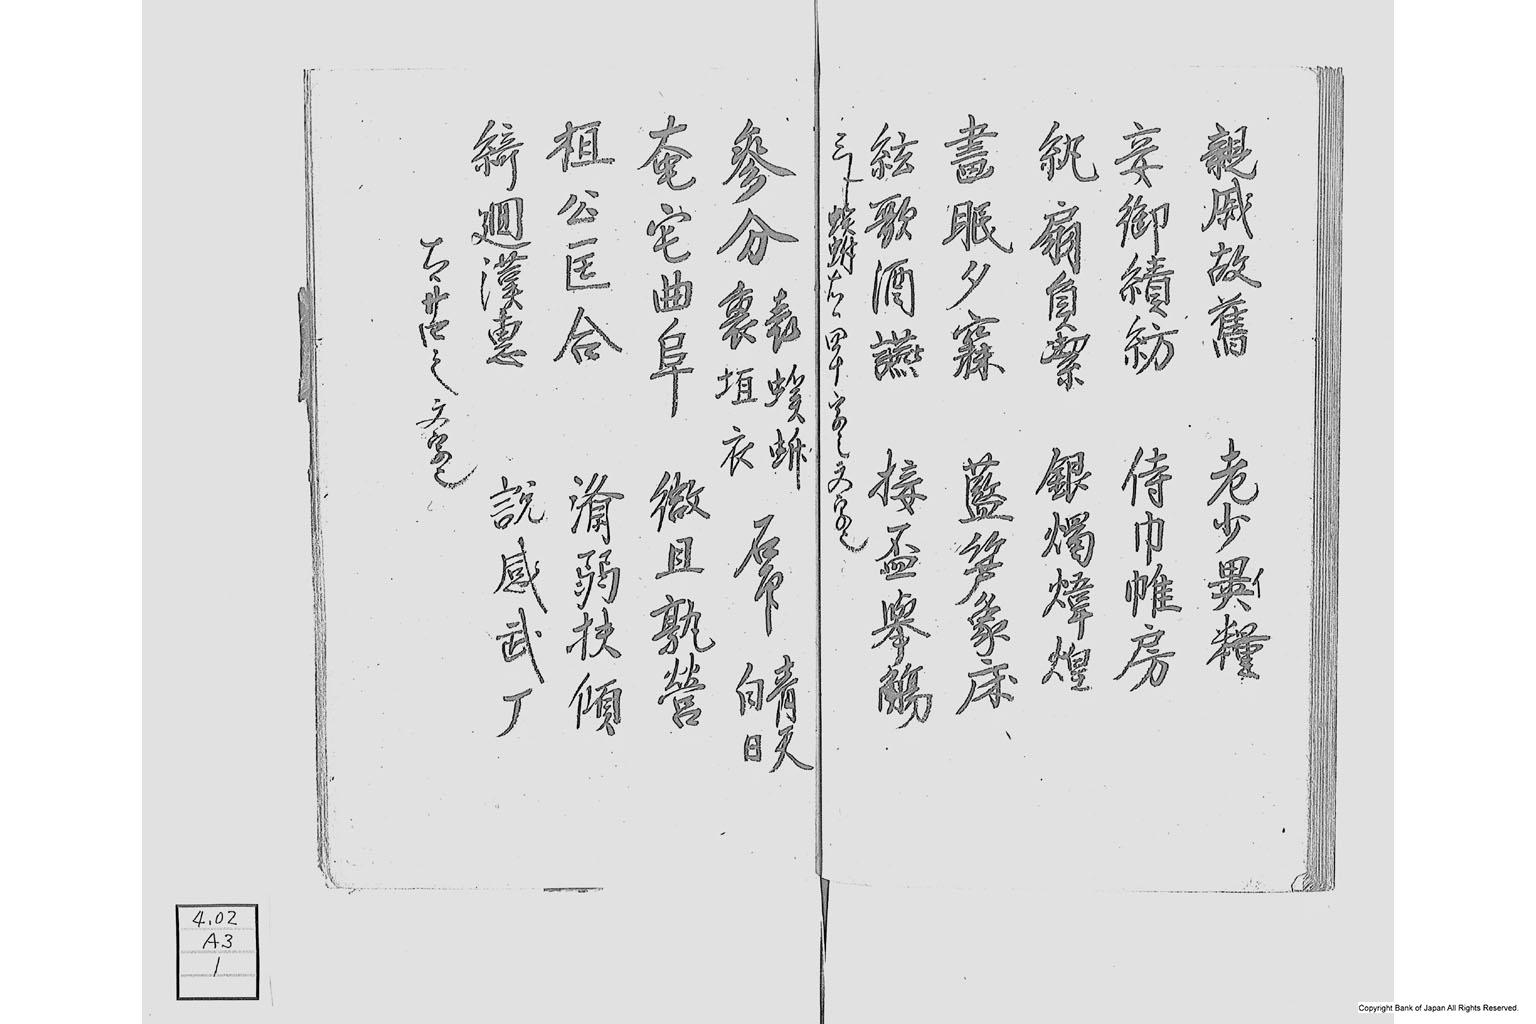 親戚故舊 老少異粮
妾御績紡 侍巾帷房
紈扇員潔 銀燭煒煌
晝眠夕寐 藍笋象床
絃歌酒讌 接盃擧觴
蚨蚹右 四十 文字
參分 表裏 蚨蚹 垣衣 席 晴天 白日
奄宅曲阜 微旦孰營
桓公匡合 濟弱扶傾
綺廻漢惠 説感武丁
右 文字
4.02
A3
1
Copyright Bank of Japan All Rights Reserved.